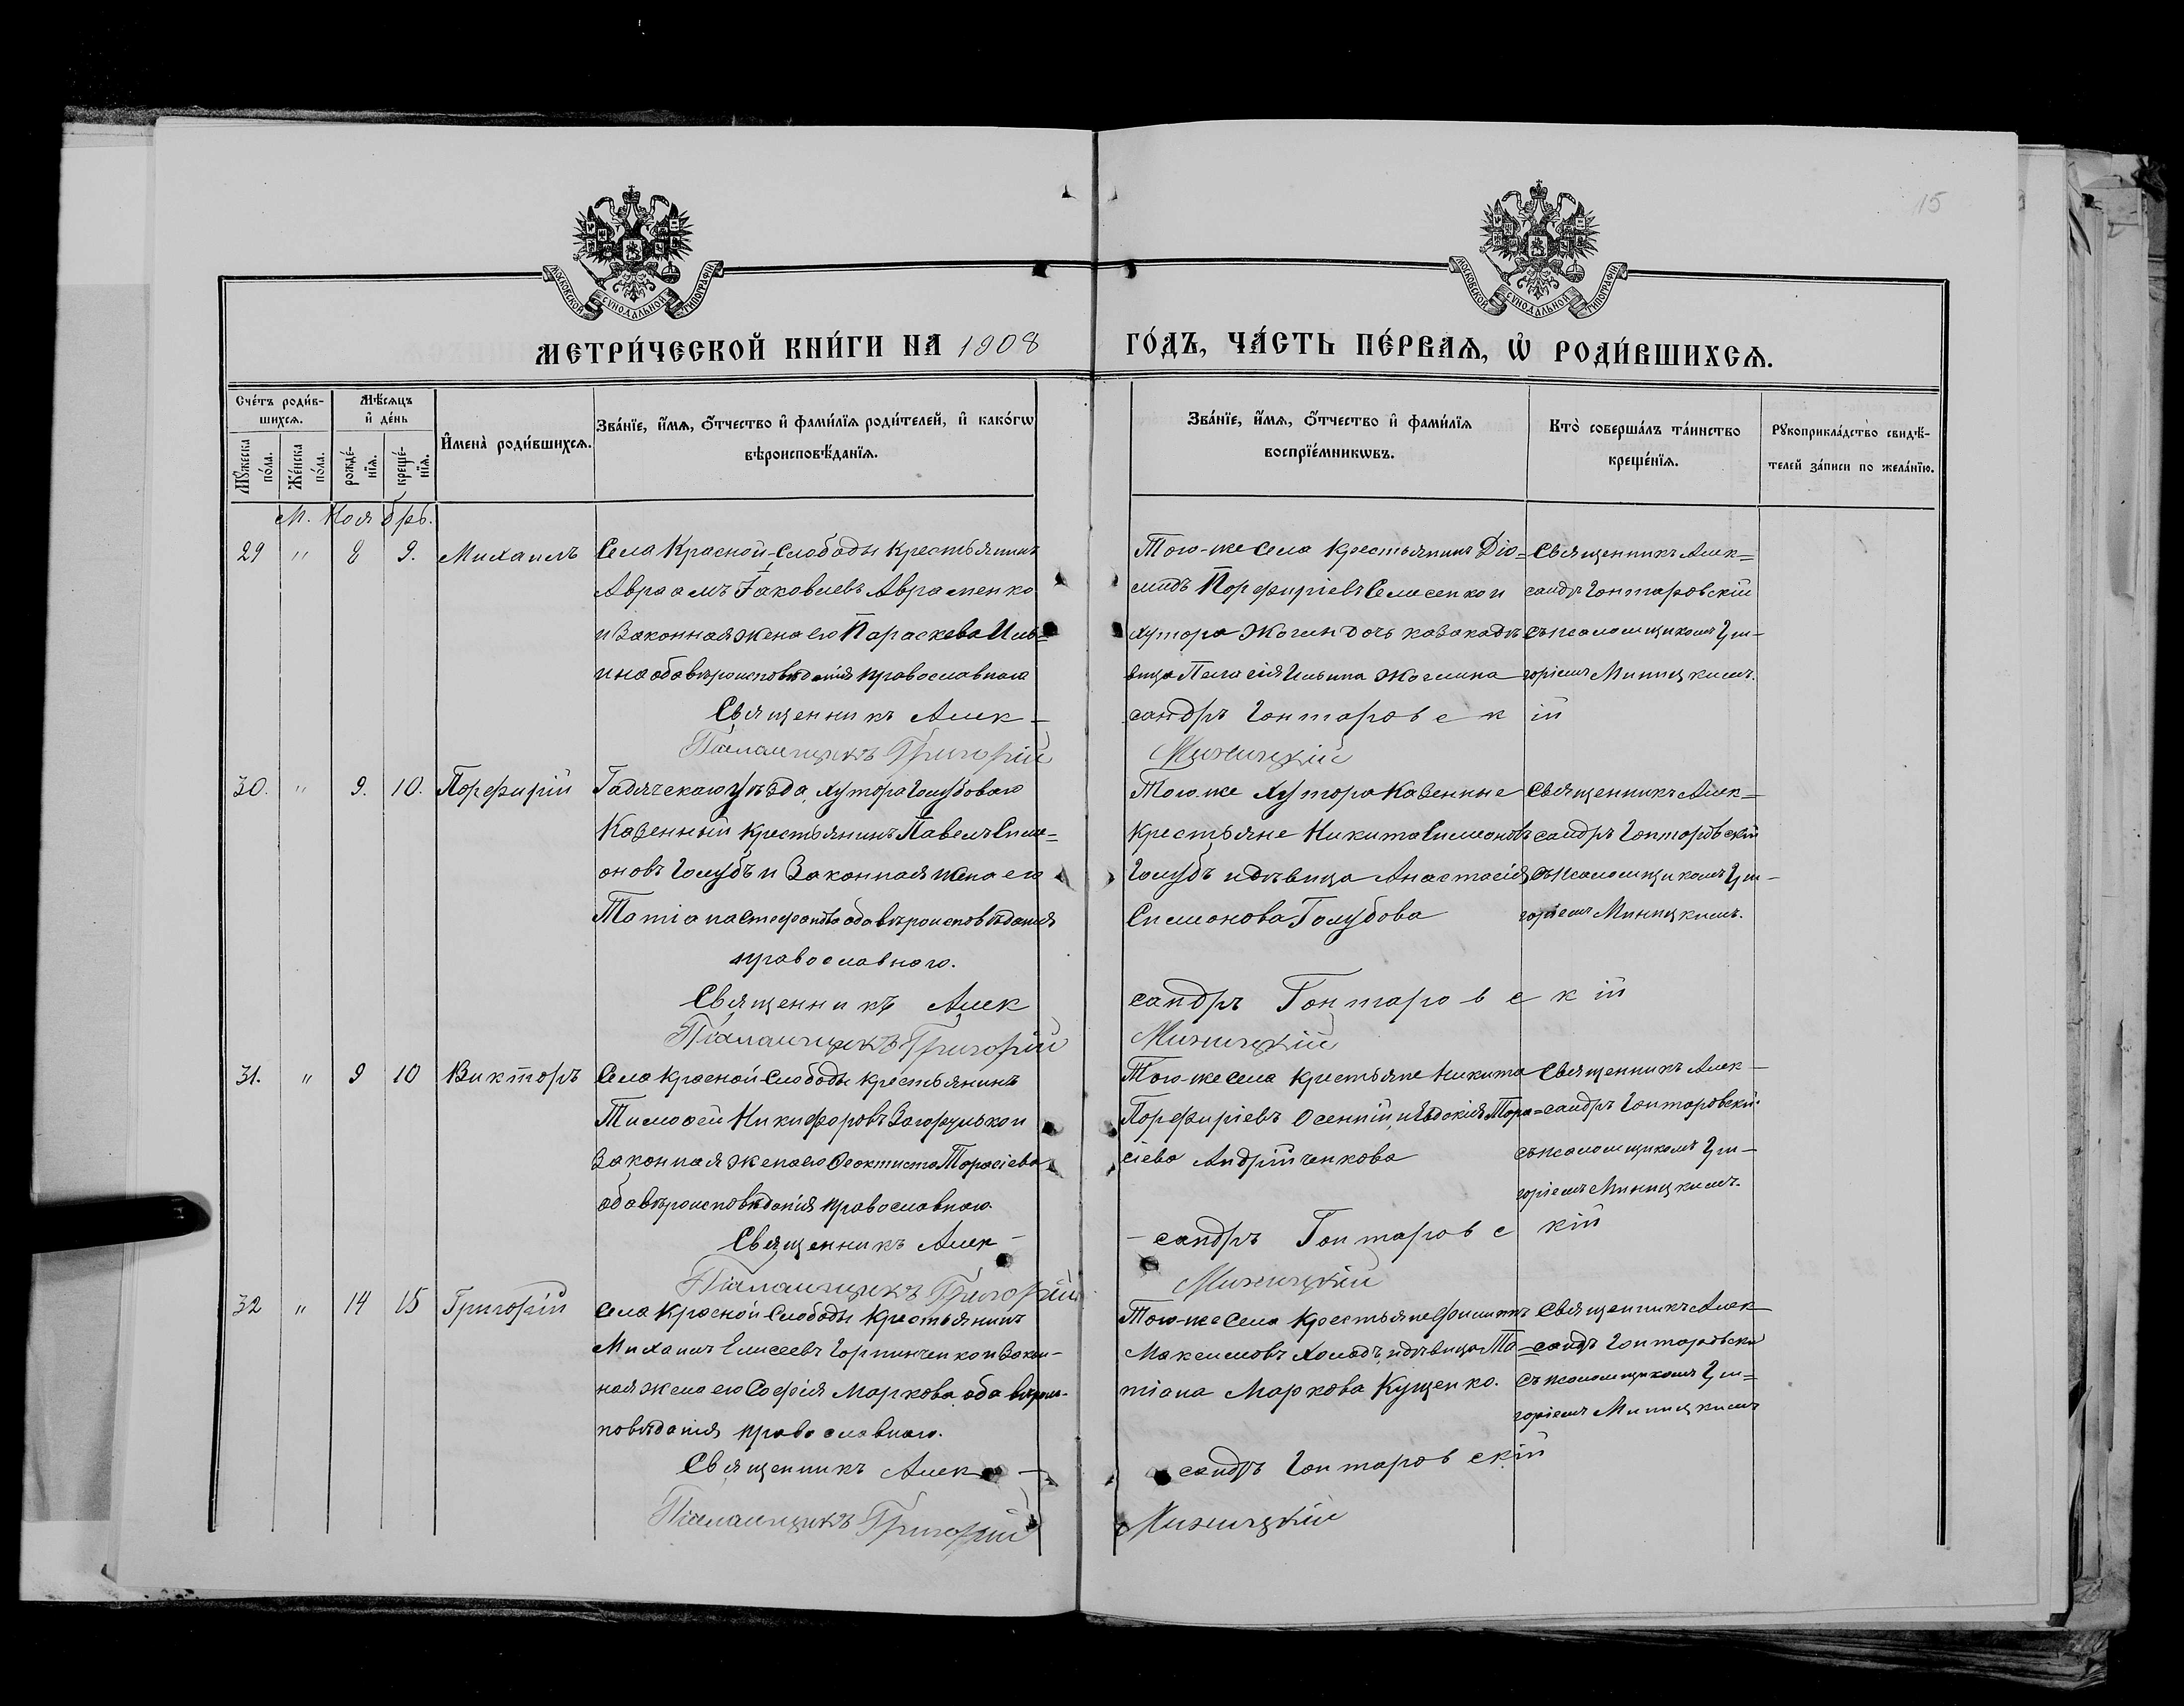 15
МОСКОВСКОЙ СѴНОДАЛЬНОЙ ТИПОГРАФІИ
МОСКОВСКОЙ СѴНОДАЛЬНОЙ ТИПОГРАФІИ
МЕТРИ́ЧЕСКОЙ КНИ́ГИ НА 1908
ГО́ДЪ, ЧА́СТЬ ПЕ́РВАѦ, Ѡ҆ РОДИ́ВШИХСѦ.
Сче́тъ роди́в-
шихсѧ.
Мꙋ́жеска
по́ла.
Же́нска
по́ла.
Мѣ́сѧцъ
и҆ де́нь
рожде́-
нїѧ.
креще́-
нїѧ.
И҆мена̀ роди́вшихсѧ.
Зва́нїе, и҆́мѧ, ѻ҆́тчество и҆ фами́лїѧ роди́телей, и҆ како́гѡ
вѣроисповѣ́данїѧ.
Зва́нїе, и҆́мѧ, ѻ҆́тчество и҆ фами́лїѧ
воспрїе́мникѡвъ.
Кто̀ соверша́лъ та́инство
креще́нїѧ.
Рꙋкоприкла́дство свидѣ́-
телей за́писи по жела́нїю.
М. Ноябрь.
29 " 8 9. Михаилъ
Села Красной-Слободы крестьянинъ
Авраамъ Іаковлевъ Авраменко
и Законная жена его Параскева Иль=
ина оба вѣроисповѣданія православнаго
Священникъ Алек-
Псаломщикъ Григорій
Того-же села крестьянинъ Діо=
мидъ Порфиріевъ Семесенко и
хутора Жогин дочь казака дѣ
вица Пелагія Ильина Жогина
сандръ Гонтаровскій
Миницкій
Священникъ Алек=
сандръ Гонтаровскій
съ псаломщикомъ Гри-
горіемъ Миницкимъ.
30. " 9. 10. Порфирій
Гадячскаго уѣзда, хутора Голубоваго
Казенный крестьянинъ Павелъ Симе=
оновъ Голубъ и Законная жена его
Татіана Стефанова оба вѣроисповѣданія
православнаго.
Священникъ Алек
Псаломщикъ Григорій
Того-же хутора Казенные
крестьяне Никита Симеоновъ
Голубъ и дѣвица Анастасія
Симеонова Голубова
сандръ Гонтаровскій
Миницкій
Священникъ Алек=
сандръ Гонтаровскій
съ псаломщикомъ Гри-
горіемъ Миницкимъ.
31. " 9 10 Викторъ
Села Красной-Слободы крестьянинъ
Тимофей Никифоровъ Загорулько и
Законная жена его Феоктиста Тарасіева
оба вѣроисповѣданія православнаго
Священникъ Алек-
Псаломщикъ Григорій
Того-же села крестьяне Никита
Порфиріевъ Осенній, и Евдокія Тара=
сіева Андрійченкова
-сандръ Гонтаровскій
Миницкій
Священникъ Алек-
сандръ Гонтаровскій
съ псаломщикомъ Гри-
горіемъ Миницкимъ.
32 " 14 15 Григорій
Села Красной Слободы Крестьянинъ
Михаилъ Елисеевъ Горпинченко и Закон-
ная жена его Софія Маркова, оба вѣроис-
повѣданія православнаго.
Священникъ Алек-
Псаломщикъ Григорій
Того-же Села крестьяне Филиппъ
Максимовъ Холодъ, и дѣвица Та-
тіана Маркова Кущенко.
сандръ Гонтаровскій
Миницкій
Священникъ Алек
сандръ Гонтаровскій
съ псаломщикомъ Гри=
горіемъ Миницкимъ